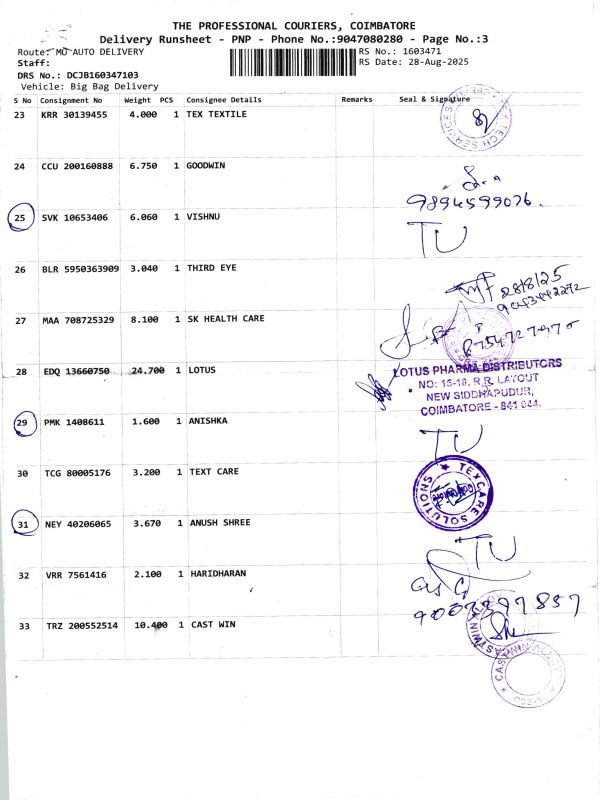 THE PROFESSIONAL COURIERS, COIMBATORE
Delivery Runsheet - PNP - Phone No.:9047080280 - Page No.:3
Route: MO AUTO DELIVERY RS No.: 1603471
Staff: RS Date: 28-Aug-2025
DRS No.: DCJB160347103
Vehicle: Big Bag Delivery
S No Consignment No Weight PCS Consignee Details Remarks Seal & Signature
23 KRR 30139455 4.000 1 TEX TEXTILE
24 CCU 200160888 6.750 1 GOODWIN
9894599076.
25 SVK 10653406 6.060 1 VISHNU TU
26 BLR 5950363909 3.040 1 THIRD EYE
28/8/25
27 MAA 708725329 8.100 1 SK HEALTH CARE
28 EDQ 13660750 24.700 1 LOTUS
LOTUS PHARMA DISTRIBUTORS
NO: 15-18, R.R. LAYOUT
NEW SIDDHAPUDUR,
COIMBATORE - 641 044.
29 PMK 1408611 1.600 1 ANISHKA TU
30 TCG 80005176 3.200 1 TEXT CARE
TEXCARE SOLUTIONS
31 NEY 40206065 3.670 1 ANUSH SHREE TU
32 VRR 7561416 2.100 1 HARIDHARAN
33 TRZ 200552514 10.400 1 CAST WIN